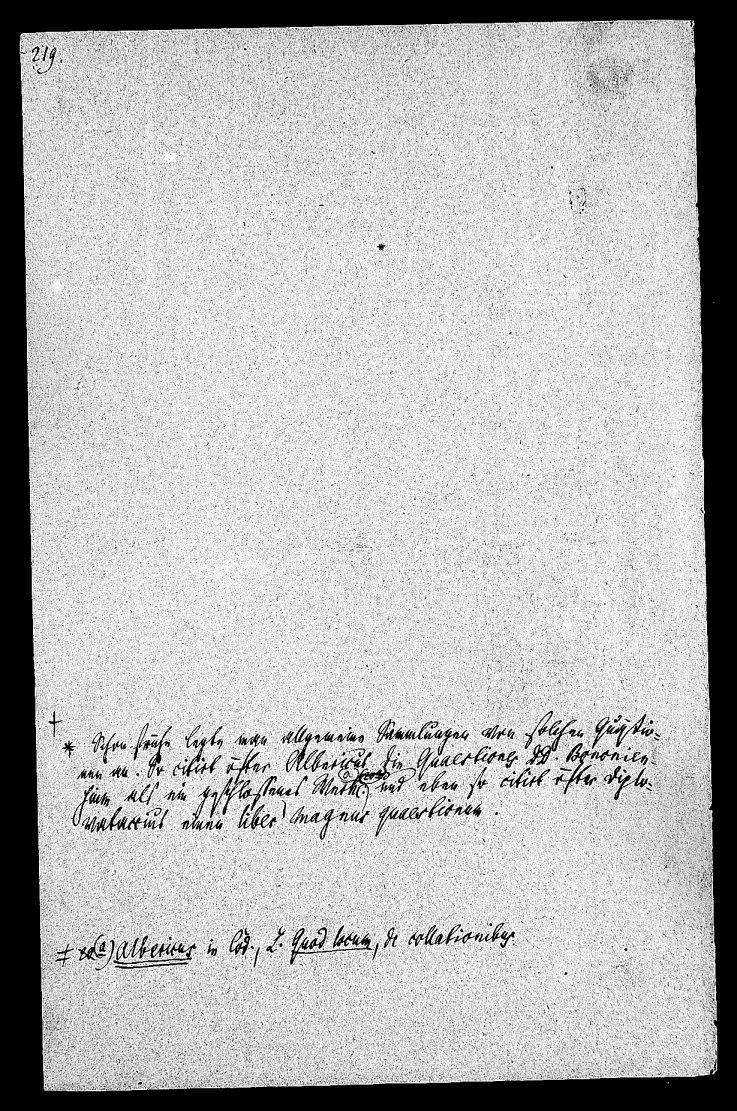 219.
†
* Schon frühe legte man allgemeine Sammlungen von solchen Quästio-
nen an. So citirt öfter Albericus die Quaestiones DD. Bononien-
sium als ein geschlossenes Werk a) und eben so citirt öfter Diplo-
vataccius einen liber magnus quaestionum.
‡ a) Albericus in Cod., L. Quod locum, de collationibus